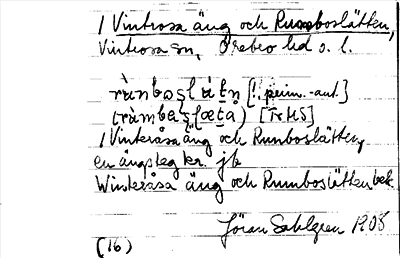 1 Vintrosa äng och Runnboslätten,
Vintrosa sn, Örebro hd o. l.
rùnbosḷátn [!. prim.-ant.]
(rùmbasḷætå) [TrHS]
1 Vinteråsa äng och Runboslätten,
en ängsteg kr. jb
Winteråsa äng och Runnboslätten bek.
Jöran Sahlgren 1908
(16)